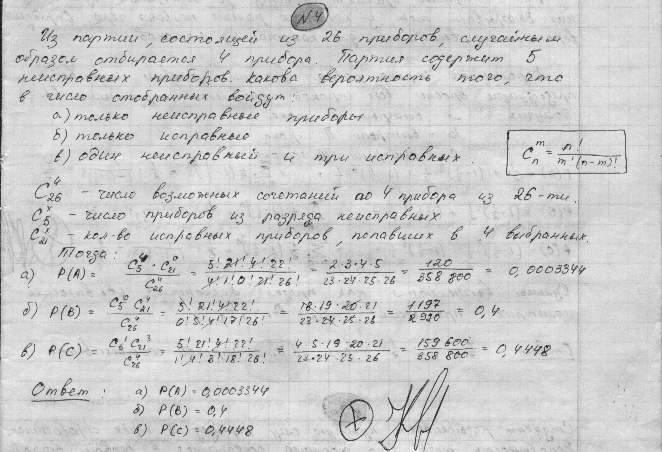 №4
Из партии, состоящей из 26 приборов, случайным
образом отбирается 4 прибора. Партия содержит 5
неисправных приборов. Какова вероятность того, что
в число отобранных войдут:
а) только неисправные приборы
б) только исправные
в) один неисправный и три исправных.
C_n^m = n! / m!(n-m)!
C_26^4 - число возможных сочетаний по 4 прибора из 26-ти.
C_5^x - число приборов из разряда неисправных
C_21^x - кол-во исправных приборов, попавших в 4 выбранных.
Тогда:
а) P(A) = C_5^4 · C_21^0 / C_26^4 = 5! 21! 4! 22! / 4! 1! 0! 21! 26! = 2·3·4·5 / 23·24·25·26 = 120 / 358 800 = 0,0003344
б) P(B) = C_5^0 C_21^4 / C_26^4 = 5! 21! 4! 22! / 0! 5! 4! 17! 26! = 18·19·20·21 / 23·24·25·26 = 1197 / 2990 = 0,4
в) P(C) = C_5^1 C_21^3 / C_26^4 = 5! 21! 4! 22! / 1! 4! 3! 18! 26! = 4·5·19·20·21 / 23·24·25·26 = 159 600 / 358 800 = 0,4448
Ответ: а) P(A) = 0,0003344
б) P(B) = 0,4
в) P(C) = 0,4448